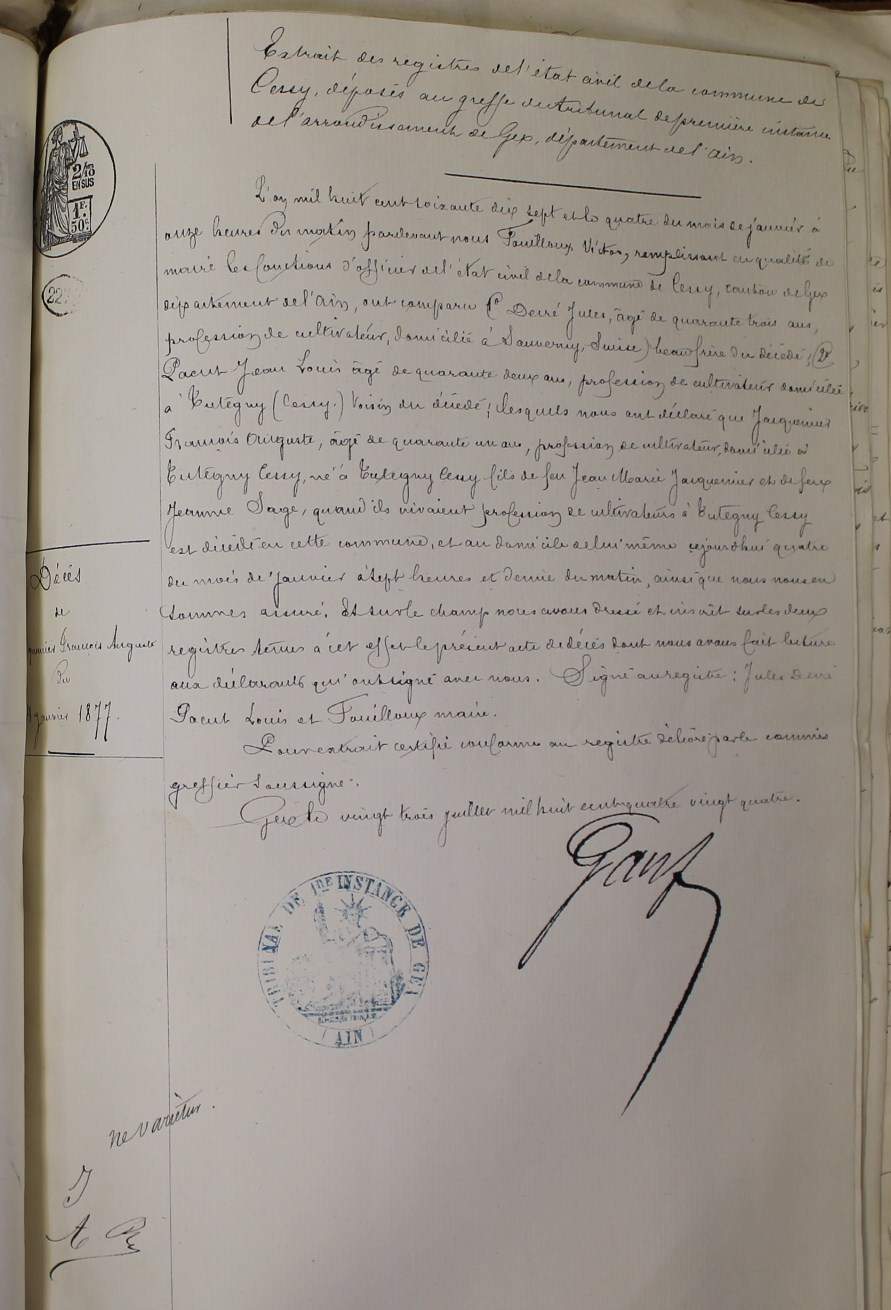 Extrait des registres de l'état civil de la commune de
Cessy, déposés au greffe du tribunal de première instance
de l'arrondissement de Gex, département de l'ain.
2/10
EN SUS
1F.
50c.
L'an mil huit cent soixante dix sept et le quatre du mois de janvier à
onze heures du matin pardevant nous Fouilloux Victor, remplissant en qualité de
maire les fonctions d'officier de l'état civil de la commune de Cessy, canton de Gex
département de l'Ain, ont comparu 1o Derré Jules, âgé de quarante trois ans,
profession de cultivateur, domicilié à Sauverny, Suisse) beaufrère du décédé, 2o
Pacut Jean Louis âgé de quarante deux ans, profession de cultivateur domicilié
à Tutegny (Cessy.) Voisin du décédé; lesquels nous ont déclaré que Jacquemier
François Auguste, âgé de quarante un ans, profession de cultivateur, domicilié à
Tutegny Cessy, né à Tutegny Cessy fils de feu Jean Marie Jacquemier et de feue
Jeanne Sage, quand ils vivaient profession de cultivateurs à Tutegny Cessy
est décédé en cette commune, et au domicile de lui même cejourdhui quatre
du mois de janvier à sept heures et demie du matin, ainsi que nous nous en
sommes assuré. Et sur le champ nous avons dressé et inscrit sur les deux
registres tenus à cet effet le présent acte de décès dont nous avons fait lecture
aux déclarants qui ont signé avec nous. Signé au registre: Jules Derré
Pacut Louis et Fouilloux maire.
Pour extrait certifié conforme au registre délivré par le commis
greffier soussigné.
Gex le vingt trois juillet mil huit cent quatre vingt quatre.
Décès
de
François Auguste
du
4 janvier 1877.
TRIBUNAL DE 1RE INSTANCE DE GEX
(AIN)
ne varietur.